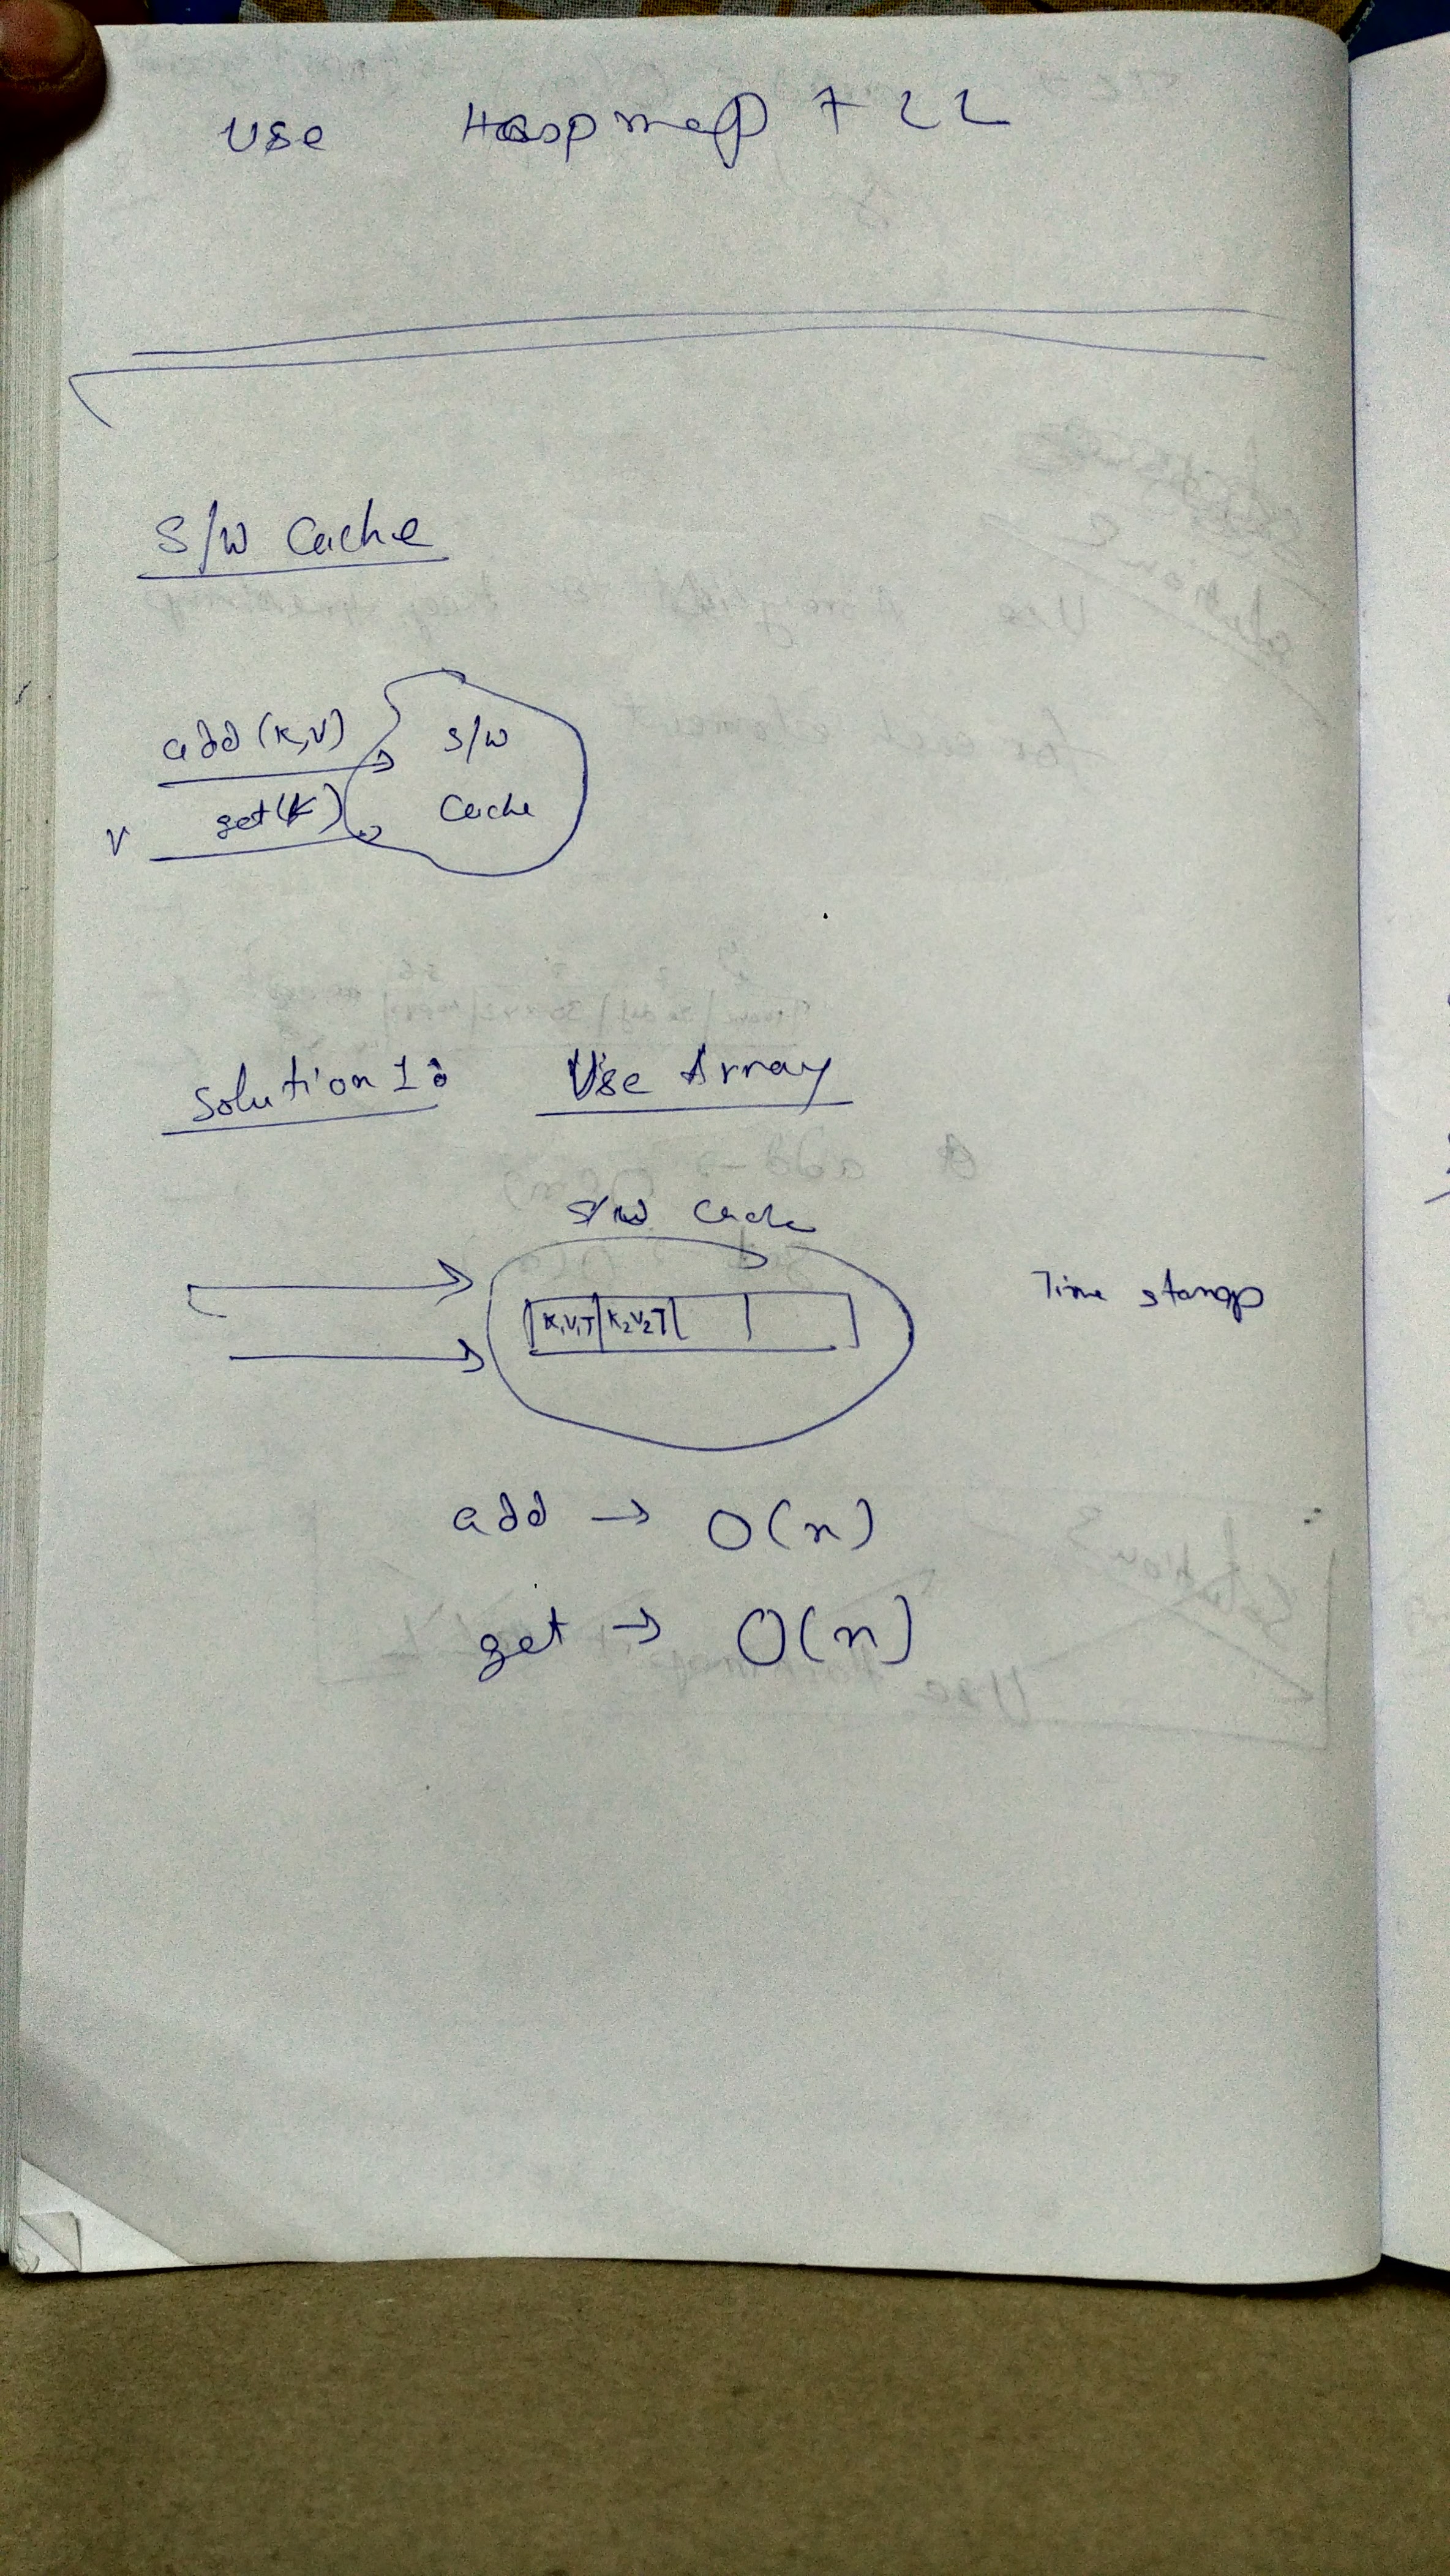 Use Haspmap + LL
S/W Cache
add (K,V)
S/W
Cache
get(K)
V
Solution 1: Use Array
S/W Cache
K1V1T K2V2T
Time stamp
add → O(n)
get → O(n)